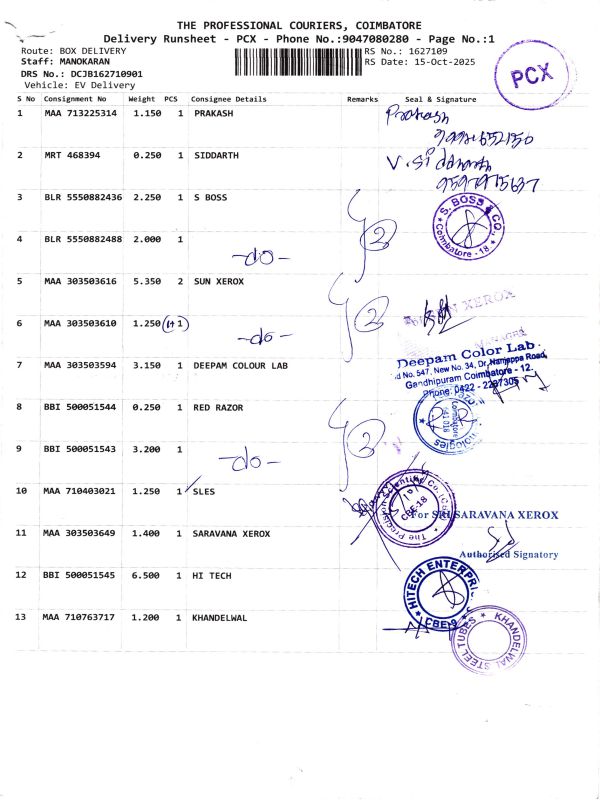 THE PROFESSIONAL COURIERS, COIMBATORE
Delivery Runsheet - PCX - Phone No.:9047080280 - Page No.:1
Route: BOX DELIVERY
RS No.: 1627109
Staff: MANOKARAN
RS Date: 15-Oct-2025
DRS No.: DCJB162710901
Vehicle: EV Delivery
PCX
S No Consignment No Weight PCS Consignee Details Remarks Seal & Signature
1 MAA 713225314 1.150 1 PRAKASH Prakash
2 MRT 468394 0.250 1 SIDDARTH V. Siddharth
9597975637
3 BLR 5550882436 2.250 1 S BOSS 2 S. BOSS & CO. Coimbatore - 18
4 BLR 5550882488 2.000 1 -do-
5 MAA 303503616 5.350 2 SUN XEROX 2 XEROX
6 MAA 303503610 1.250 (1+1) -do-
7 MAA 303503594 3.150 1 DEEPAM COLOUR LAB
Deepam Color Lab
d No. 547, New No. 34, Dr. Nanjappa Road,
Gandhipuram Coimbatore - 12.
Phone: 0422 - 2237305
8 BBI 500051544 0.250 1 RED RAZOR 2
9 BBI 500051543 3.200 1 -do-
10 MAA 710403021 1.250 1 SLES The Precision Scientific Co. (Cbe) CBE-18
11 MAA 303503649 1.400 1 SARAVANA XEROX
For SRI SARAVANA XEROX
Authorised Signatory
12 BBI 500051545 6.500 1 HI TECH HITECH ENTERPRI CBE
13 MAA 710763717 1.200 1 KHANDELWAL KHANDELWAL STEEL TUBES